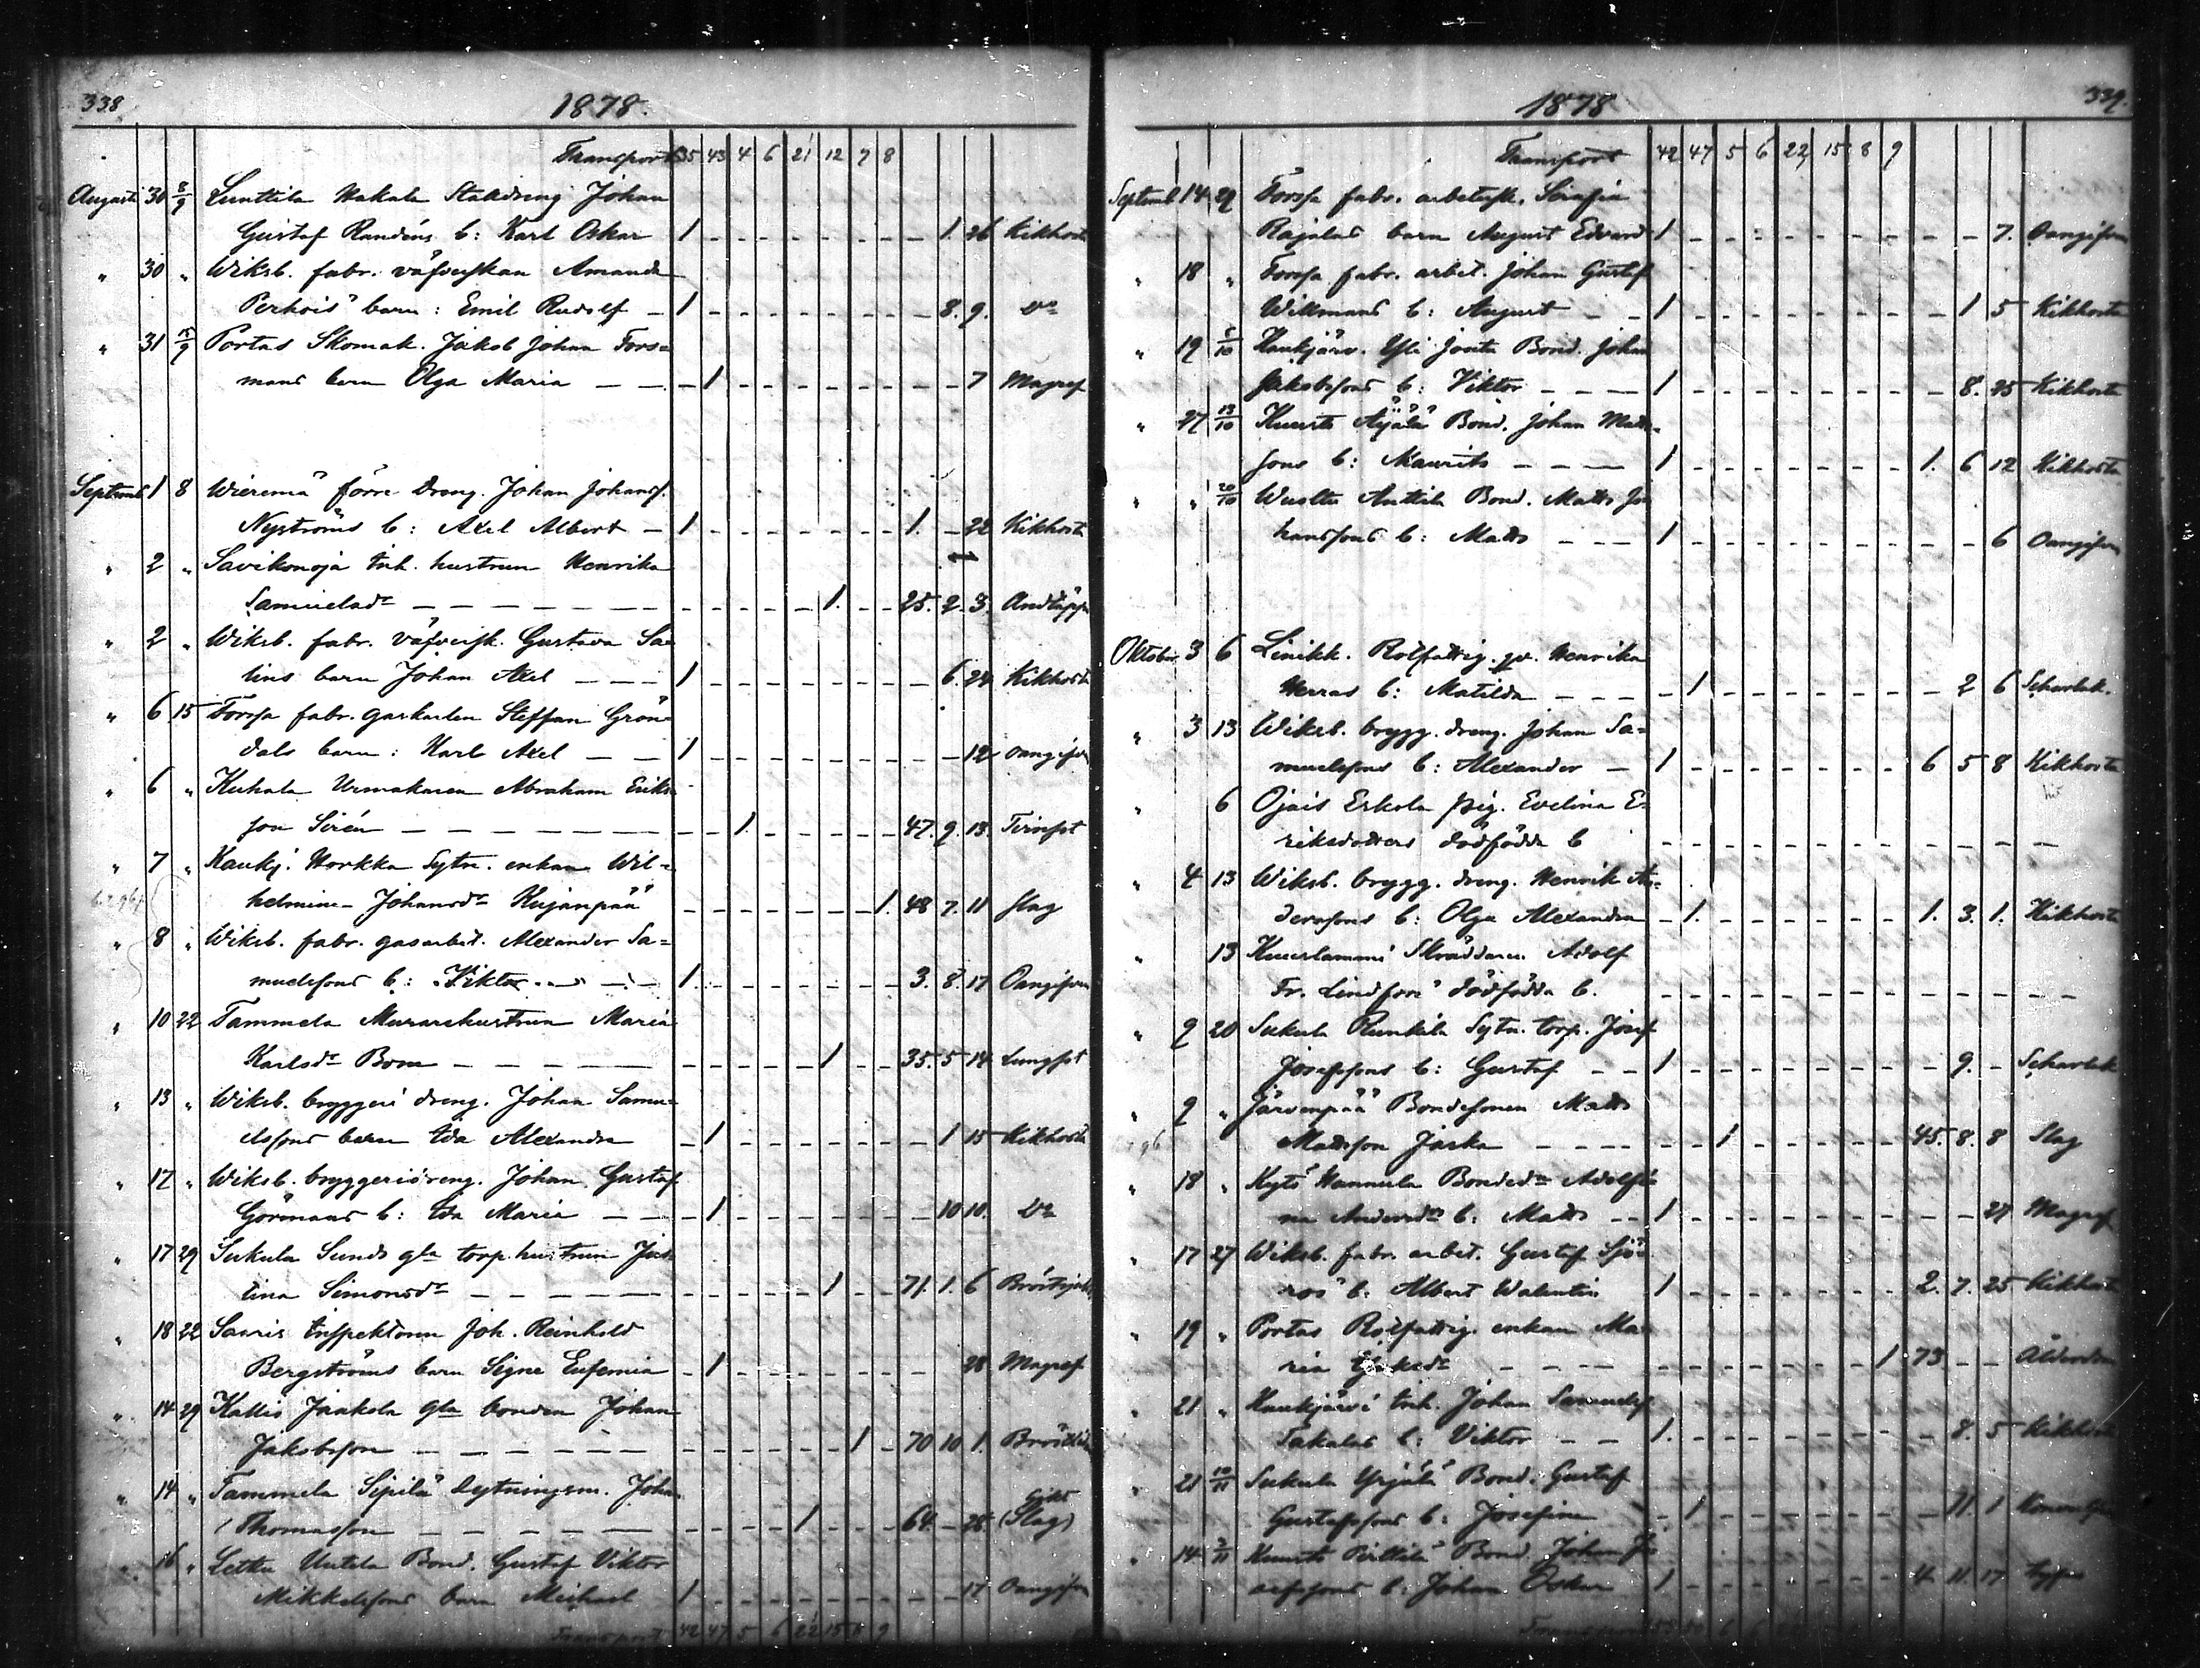 338 1878.
Transport 35 43 4 6 21 12 7 8
Augusti 30 8/9 Lunttila Hakala Stalldreng Johan
Gustaf Randéns b: Karl Oskar 1 1. 26 Kikhosta
" 30 " Wiksb. fabr. väfverskan Amanda
Perhois barn: Emil Rudolf 1 8. 9. Do
" 31 15/9 Portas Skomak. Jakob Johan Fors=
mans barn Olga Maria 1 7 Magref
Septemb 1 8 Wieremä förre Dreng. Johan Johansf.
Nyströms b: Axel Albert 1 1. - 22 Kikhosta
" 2 " Savikonoja inh. hustrun Henrika
Samuelsdr 1. 25. 2. 3. Andtäppa
" 2 " Wiksb. fabr. väfversk. Gustava Sa=
lins barn Johan Axel 1 6. 24 Kikhosta
" 6 15 Forssa fabr. gaskarlen Steffan Grön=
dals barn: Karl Axel 1 12 oangifven
" 6 " Kuhala Urmakaren Abraham Eriks=
son Sirén 1. 47. 9. 13. Tvinsot
" 7 " Kaukj. Horkka Sytn. enkan Wil=
helmina Johansdr Kujanpää 1. 48 7. 11 slag
" 8 " Wiksb. fabr. gasarbet. Alexander Sa=
muelssons b: Viktor 1. 3. 8. 17 Oangifven
" 10 22 Tammela Murarehustrun Maria
Karlsdr Bom 1 35. 5 14 Lungsot
" 13 " Wiksb. bryggeri dreng. Johan Samu=
elssons barn Ida Alexandra 1 1 15 Kikhosta
" 12 " Wiksb. bryggeridreng. Johan Gustaf
Görmans b: Ida Maria 1 10 10. Do
" 17 29 Sukula Sunds gla torp. hustrun Jus=
tina Simonsdr 1 71. 1. 6
" 18 22 Saaris Inspektorn Joh. Reinhold
Bergströms barn Signe Eufemia 1 28 Magref
" 14 29 Kallio Jaakola gla bonden Johan
Jakobsson 1 70 10 1.
" 14 " Tammela Sipilä Sytningsm. Johan
Thomasson 1 64 - 25 (Slag)
" 16 " Letku Uutela Bond. Gustaf Viktor
Mikkelssons barn Michael 1 17 Oangifven
Transport 42 47 5 6 22 15 8 9
1878 339.
Transport 42 47 5 6 22 15 8 9
Septemb 14 29 Forssa fabr. arbetersk. Serafia
Rajalas barn August Edvard 1 7. Oangifven
" 18 " Forssa fabr. arbet. Johan Gustaf
Wikmans b: August 1 1 5 Kikhosta
" 19 5/10 Kaukjärv. Yli Jouta Bond. Johan
Jakobssons b: Viktor 1 8. 25 Kikhosta
" 27 13/10 Kuusto Äijälä Bond. Johan Matts=
sons b: Maurits 1 1. 6 12 Kikhosta
" " 20/10 Wuolto Anttila Bond. Matts Jo=
hanssons b: Matts 1 6 Oangifven
Oktober 3 6 Linikk. Rotfattig. qv. Henrika
Herras b: Matilda 1 2 6 Scharlak.
" 3 13 Wiksb. brygg. dreng. Johan Sa=
muelssons b: Alexander 1 6 5 8 Kikhosta
" 6 Ojais Erkola pig. Evelina E=
riksdotters dödfödda b
" 4 13 Wiksb. brygg. dreng. Henrik An=
derssons b: Olga Alexandra 1. 1. 3. 1. Kikhosta
" 13 Kuuslammi Skräddaren Adolf
Fr. Lindfors dödfödda b.
" 9 20 Sukula Runkila Sytn. torp. Josef
Josefssons b: Gustaf 1 9. - Scharlak
" 9 " Järvenpää Bondesonen Matts
Mattsson Jaska 1 45. 8. 8 Slag
" 18 " Kytö Hannula Bondedr Adolfi=
na Andersdrs b: Matts 1 27 Magref
" 17 27 Wiksb. fabr. arbet. Gustaf Sjö=
ros b: Albert Walentin 1 2. 7. 25 Kikhosta
" 19 " Portas Rotfattig. enkan Ma=
ria 1 73 - - Ålderdom
" 21 " Kaukjärvi inh. Johan Samuelsf.
Takalas b: Viktor 1. 8. 5 Kikhosta
" 21 10/11 Sukula Yrjälä Bond. Gustaf
Gustafssons b: Josefina 1 11. 1
" 14 3/11 Kuusto Pirttilä Bond. Johan Jo=
sefssons b: Johan Oskar 1 4. 11. 17
Transport